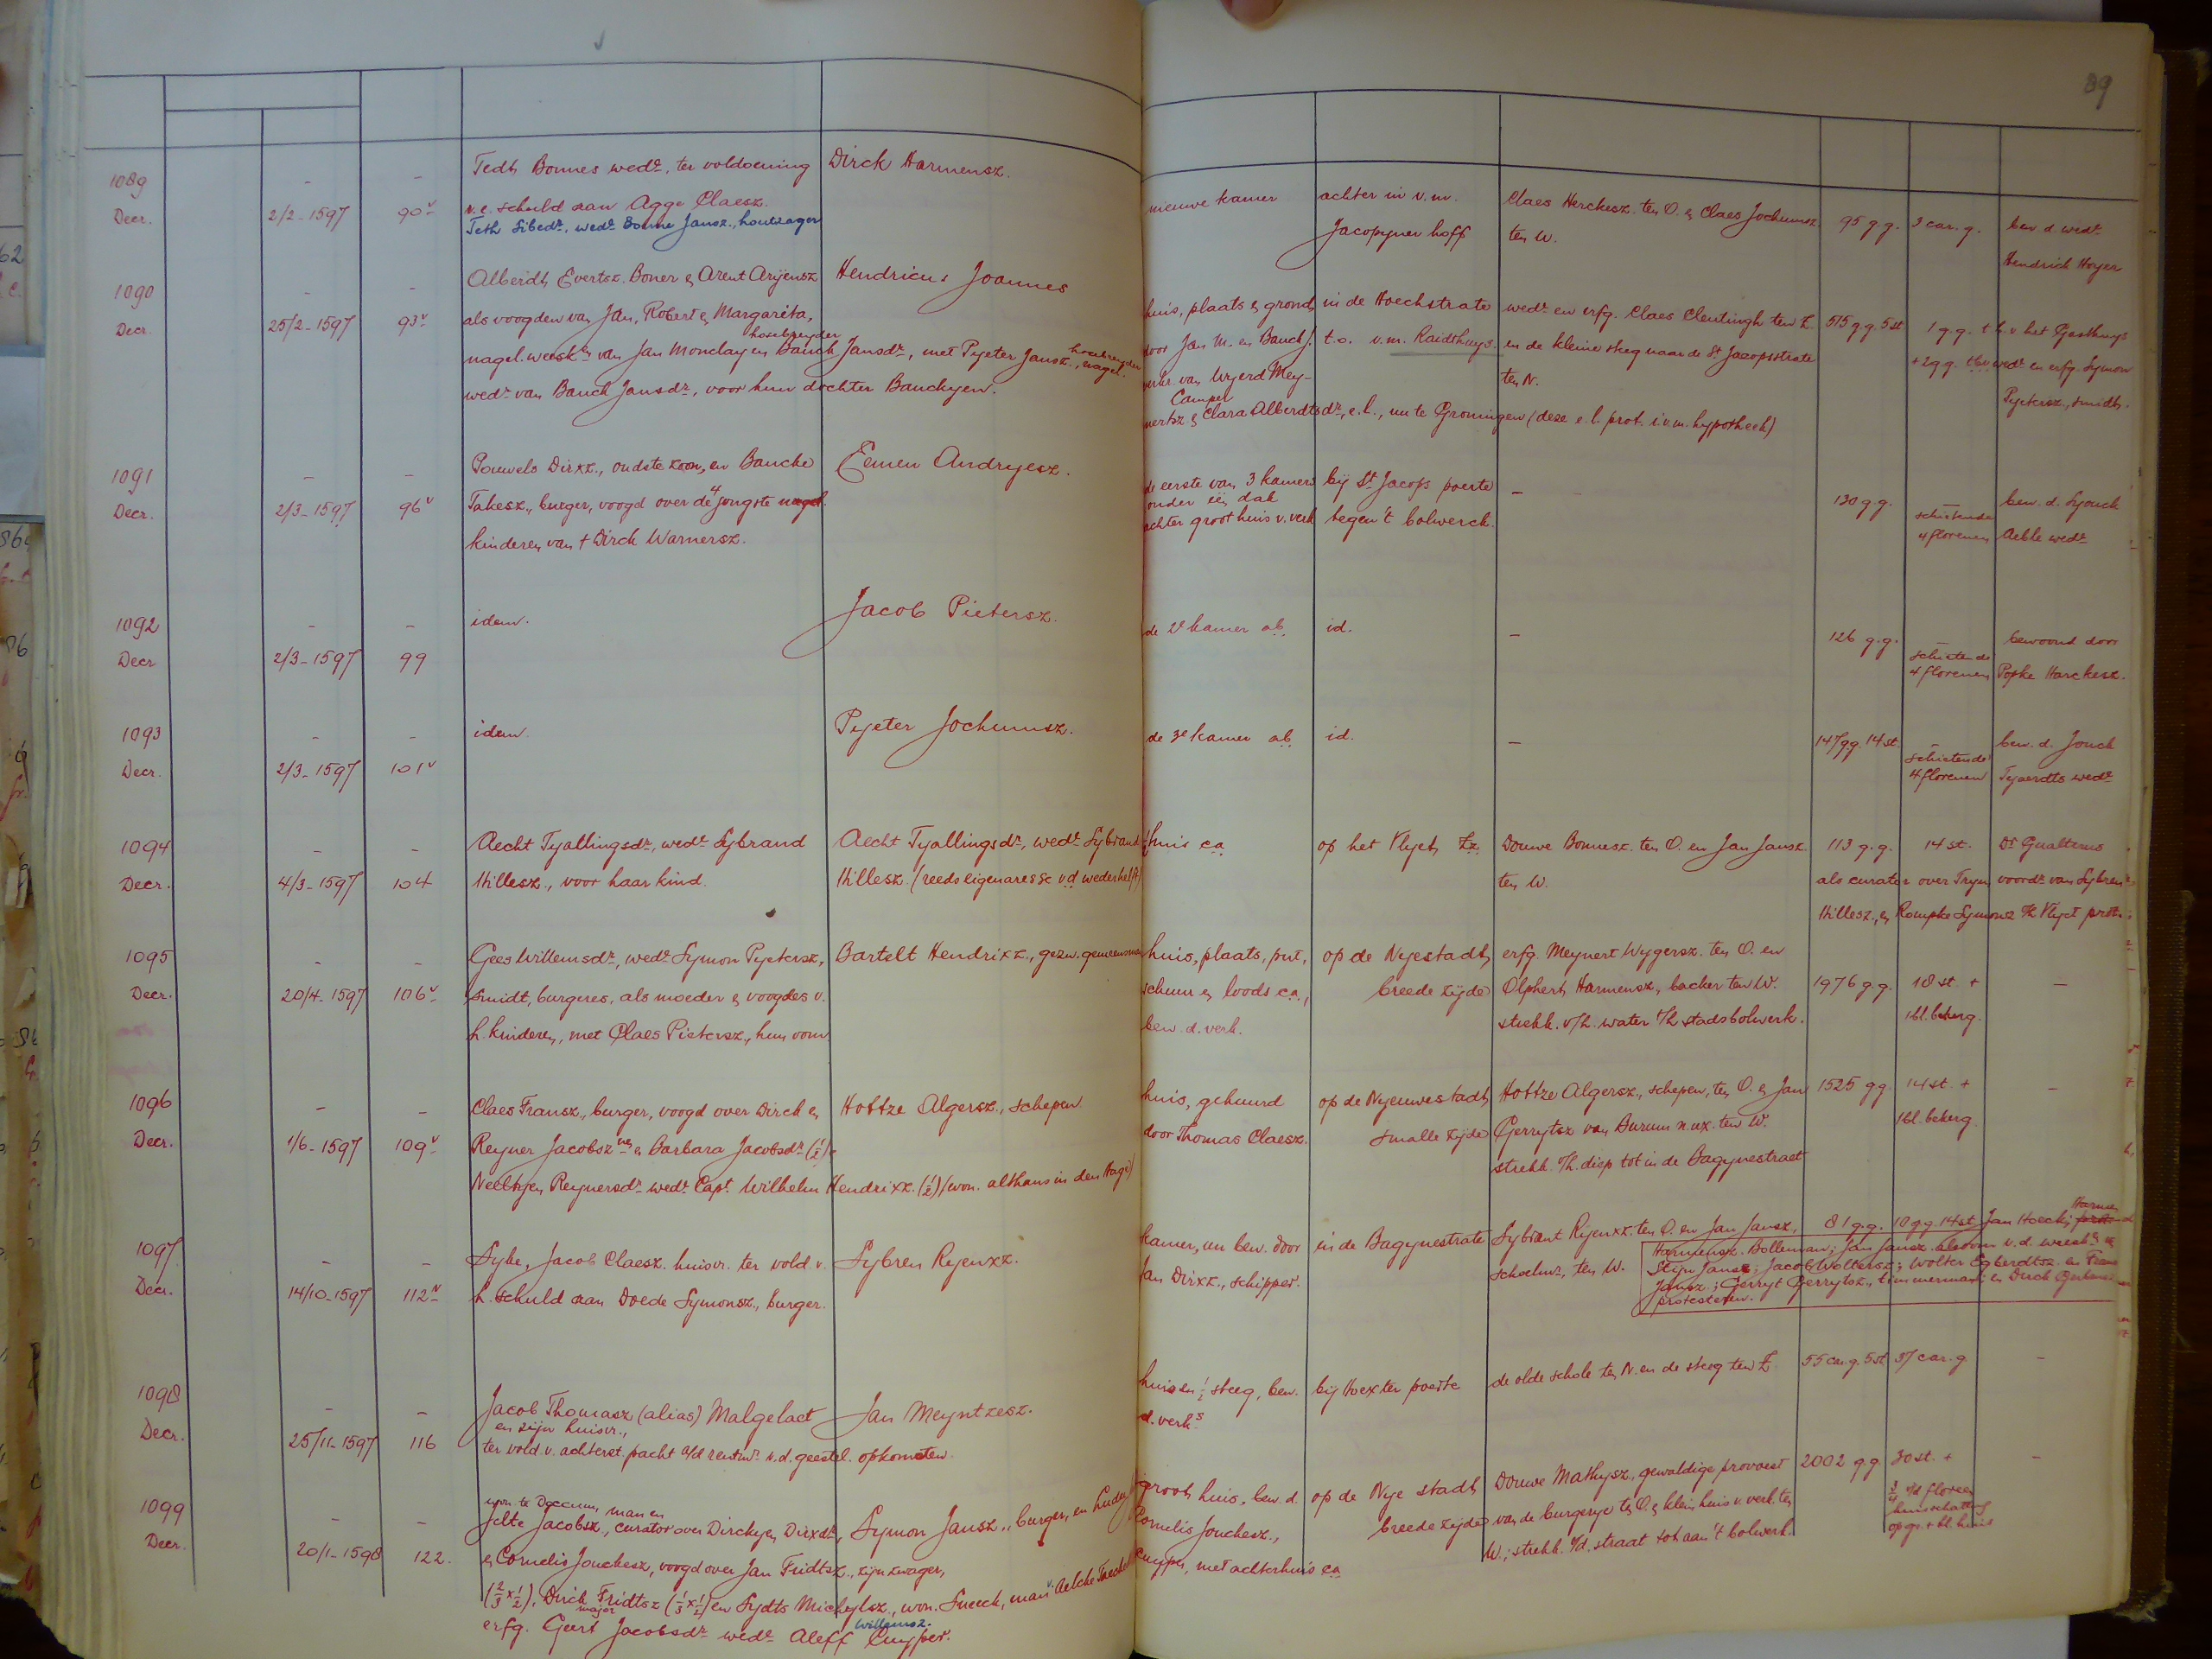 89
1089 - - Tedts Bonnes wedr, ter voldoening Dirck Harmensz.
Decr. 2/2-1597 90v v.e. schuld aan Agge Claesz. nieuwe kamer achter in v.m. Claes Herckesz. ten O. & Claes Jochumsz. 95 g.g. 3 car.g. bew. d. wedr
Teth Sibedr, wedr Bonne Jansz., houtzager Jacopyner hoff ten W. Hendrick Hoyer
1090 - - Alberdts Evertsz. Boner & Arent Aryensz Hendricus Joannes
Decr. 25/2-1597 93v als voogden van Jan, Robert & Margarita, huis, plaats & grond in de Hoechstrate wedr en erfg. Claes Cleutingh ten Z. 515 g.g. 5 st 1 g.g. t.b.v. het Gasthuys
nagel. weeskn van Jan Monclay en Bauch Jansdr, met Pyeter Jansz., nagel. door Jan M. en Bauch J. t.o. v.m. Raidthuys. en de kleine steeg naar de St Jacopsstrate + 2 g.g. tbv wedr en erfg. Symon
wedr van Bauch Jansdr, voor hun dochter Bauckyen. verkr. van Wyerd Mey- ten N. Pyetersz., smidts.
Camper
nertsz & Clara Alberdtsdr, e.l., nu te Groningen (deze e.l. prot. i.v.m. hypotheek)
1091 - - Pouwels Dirxz., oudste zoon, en Baucke Eemen Andryesz.
Decr. 2/3-1597 96v Takesz., burger, voogd over de 4 jongste nagel. de eerste van 3 kamers bij St Jacops poerte - 130 g.g. - bew. d. Sjouck
onder een dak schietende
kinderen van + Dirck Warnersz. achter groot huis v. verk tegen 't bolwerck. 4 florenen Aeble wedr
1092 - - idem. Jacob Pietersz. de 2e kamer ab. id. - 126 g.g. - bewoond door
Decr 2/3-1597 99 schietende
4 florenen Popke Harckesz.
1093 - - idem. Pyeter Jochumsz. de 3e kamer ab. id. - 147 g.g. 14 st. - bew. d. Jouck
Decr. 2/3-1597 101v schietende
4 florenen Tyaerdts wedr
1094 - - Aecht Tyallingsdr, wedr Sybrand Aecht Tyallingsdr, wedr Sybrand huis ca. op het Vlyet, Zz. Douwe Bonnesz. ten O. en Jan Jansz. 113 g.g. 14 st. Dr Gualterus
Decr. 4/3-1597 104 Hillesz., voor haar kind. Hillesz. (reeds eigenaresse v.d. wederhelft) ten W. als curator over Tryn, voordr van Sybren
Hillesz., & Rompke Symonsz. Vlyet prot.
1095 - - Gees Willemsdr, wedr Symon Pyetersz., Bartelt Hendrixz., gezw. gemeensman huis, plaats, put, op de Nyestadt, erfg. Meynert Wygersz. ten O. en
Decr. 20/4-1597 106v smidt, burgeres, als moeder & voogdes v. schuur & loods c.a., breede zijde Olphert Harmensz., backer ten W. 1976 g.g. 18 st. + -
h. kinderen, met Claes Pietersz., hun oom bew. d. verk. strekk. v/h. water t/h stadsbolwerk. 1 bl. beherg.
1096 - - Claes Fransz., burger, voogd over Dirck & Hottze Algersz., schepen huis, gehuurd op de Nyeuwestadt, Hottze Algersz., schepen, ten O. & Jan 1525 g.g. 14 st. + -
Decr. 1/6-1597 109v Reyner Jacobsznen & Barbara Jacobsdr (1/2) & door Thomas Claesz. smalle zijde Gerrytsz van Burum n.ux. ten W. 1 bl. beherg.
Neeltyen Reynersdr wedr Capt. Wilhelm Hendrixz. (1/2) (won. althans in den Hage) strekk. v/h. diep tot in de Bagynestraet
1097 - - Syke, Jacob Claesz. huisvr. ter vold. v. Sybren Ryenxz. kamer, nu bew. door in de Bagynestrate Sybrant Ryenxz. ten O. en Jan Jansz., 81 g.g. 10 g.g. 14 st. Jan Hoeck;
Decr. 14/10-1597 112v h. schuld aan Doede Symonsz., burger. Jan Dirxz., schipper. schoelmr., ten W. Harmensz. Bolleman; Jan Jansz. als oom v.d. weeskn v.
Stijn Jansz; Jacob Woltersz.; Wolter Egberdtsz. en Frans
Jansz.; Gerryt Gerrytsz., timmerman en Dirck
protesteren.
1098 - - Jacob Thomasz (alias) Malgelaet Jan Meyntzesz. huis en 1/2 steeg, bew. bij Hoexter poerte de olde schole ten N. en de steeg ten Z. 55 car.g. 5 st 37 car.g. -
en zijn huisvr.,
Decr. 25/11-1597 116 ter vold. v. achterst. pacht a/d rentmr v.d. geestel. opkomsten. d. verks
1099 - - won. te Doccum, man en
Decr. 20/1-1598 122. Jelte Jacobsz., curator over Dirckyen Dirxdr, Symon Jansz., burger, en groot huis, bew. d. op de Nye stadt Douwe Mathysz., gewaldige provoest 2002 g.g. 30 st. + -
& Cornelis Jouckesz, voogd over Jan Fridtsz., zijn zwager, Cornelis Jouckesz., breede zijde van de burgerye ten O. & klein huis v. verk. ten
(2/3 x 1/2), Dirck Fridtsz (1/3 x 1/2) en Sydts Michylsz., won. Sneeck, man v. Aelcke cuyper, met achterhuis ca. W.; strekk. v/d. straat tot aan 't bolwerk.
major Willemsz.
erfg. Geert Jacobsdr wedr Aleff Cuyper.